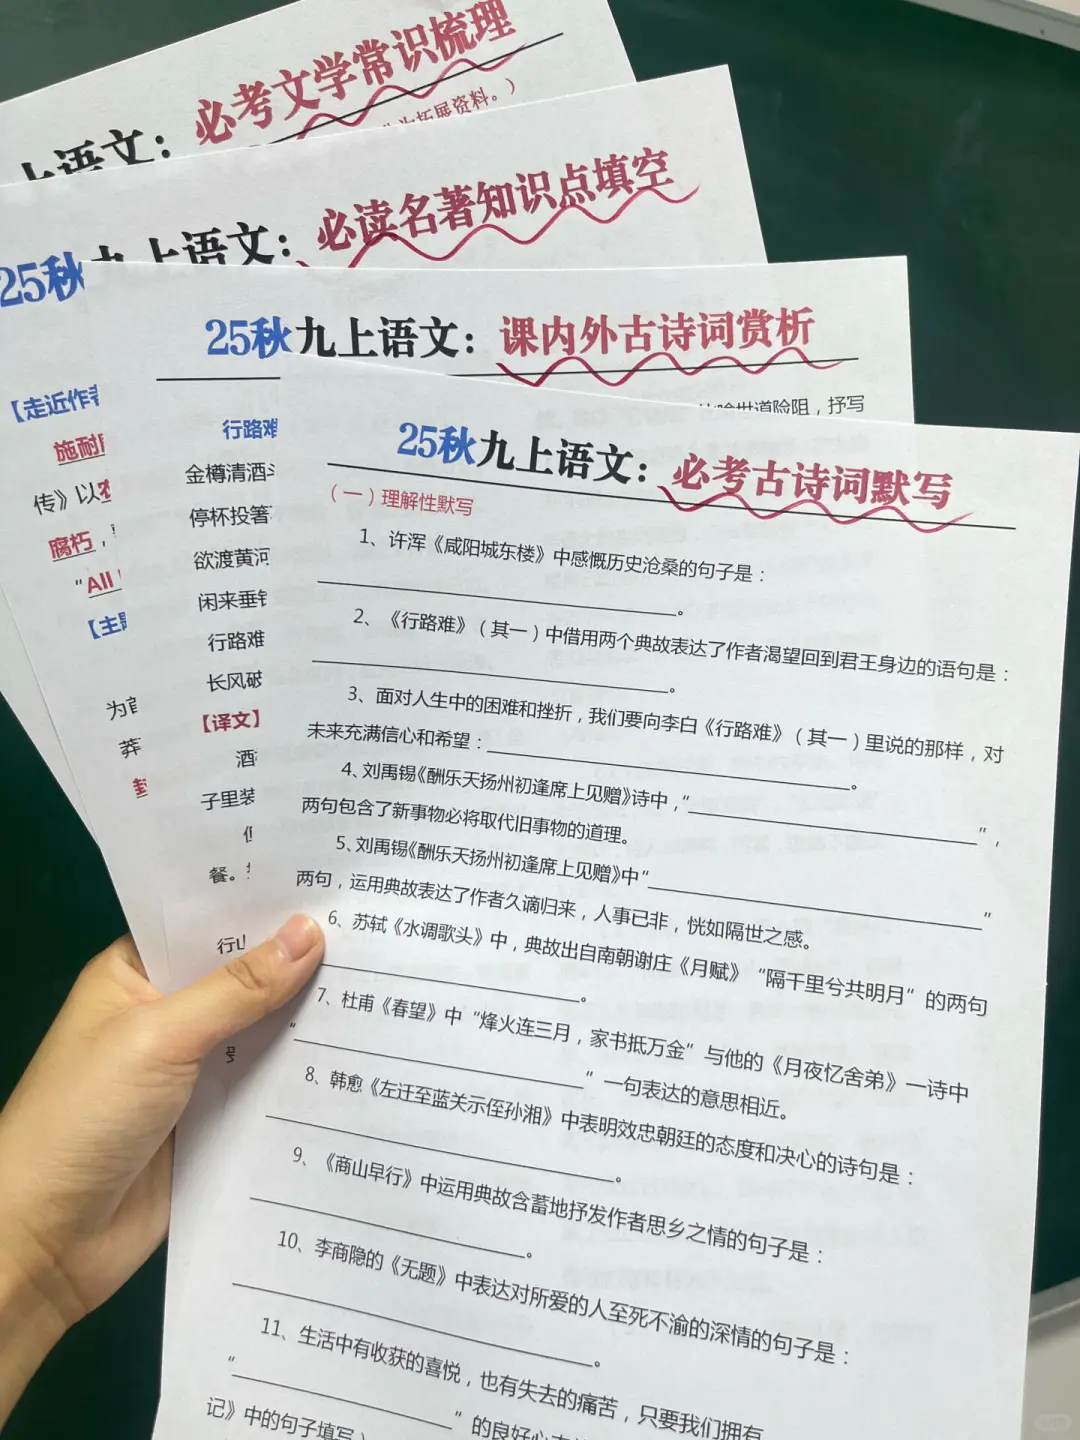 必考文学常识梳理
上语文：
拓展资料。）
25秋九上语文：必读名著知识点填空
【走近作者
施耐
传》以
腐朽，
“All
【主题
为官
莽
25秋九上语文：课内外古诗词赏析
世道险阻，抒写
行路难
金樽清酒斗
停杯投箸
欲渡黄河
闲来垂钓
行路难
长风破
【译文】
酒
子里装
餐。
行山
号
25秋九上语文：必考古诗词默写
（一）理解性默写
1、许浑《咸阳城东楼》中感慨历史沧桑的句子是：
。
2、《行路难》（其一）中借用两个典故表达了作者渴望回到君王身边的语句是：
。
3、面对人生中的困难和挫折，我们要向李白《行路难》（其一）里说的那样，对
未来充满信心和希望：。
4、刘禹锡《酬乐天扬州初逢席上见赠》诗中，“”，
两句包含了新事物必将取代旧事物的道理。
5、刘禹锡《酬乐天扬州初逢席上见赠》中“”
两句，运用典故表达了作者久谪归来，人事已非，恍如隔世之感。
6、苏轼《水调歌头》中，典故出自南朝谢庄《月赋》“隔千里兮共明月”的两句
。
7、杜甫《春望》中“烽火连三月，家书抵万金”与他的《月夜忆舍弟》一诗中
“”一句表达的意思相近。
8、韩愈《左迁至蓝关示侄孙湘》中表明效忠朝廷的态度和决心的诗句是：
。
9、《商山早行》中运用典故含蓄地抒发作者思乡之情的句子是：
。
10、李商隐的《无题》中表达对所爱的人至死不渝的深情的句子是：
。
11、生活中有收获的喜悦，也有失去的痛苦，只要我们拥有
“”的良好心
记》中的句子填写）